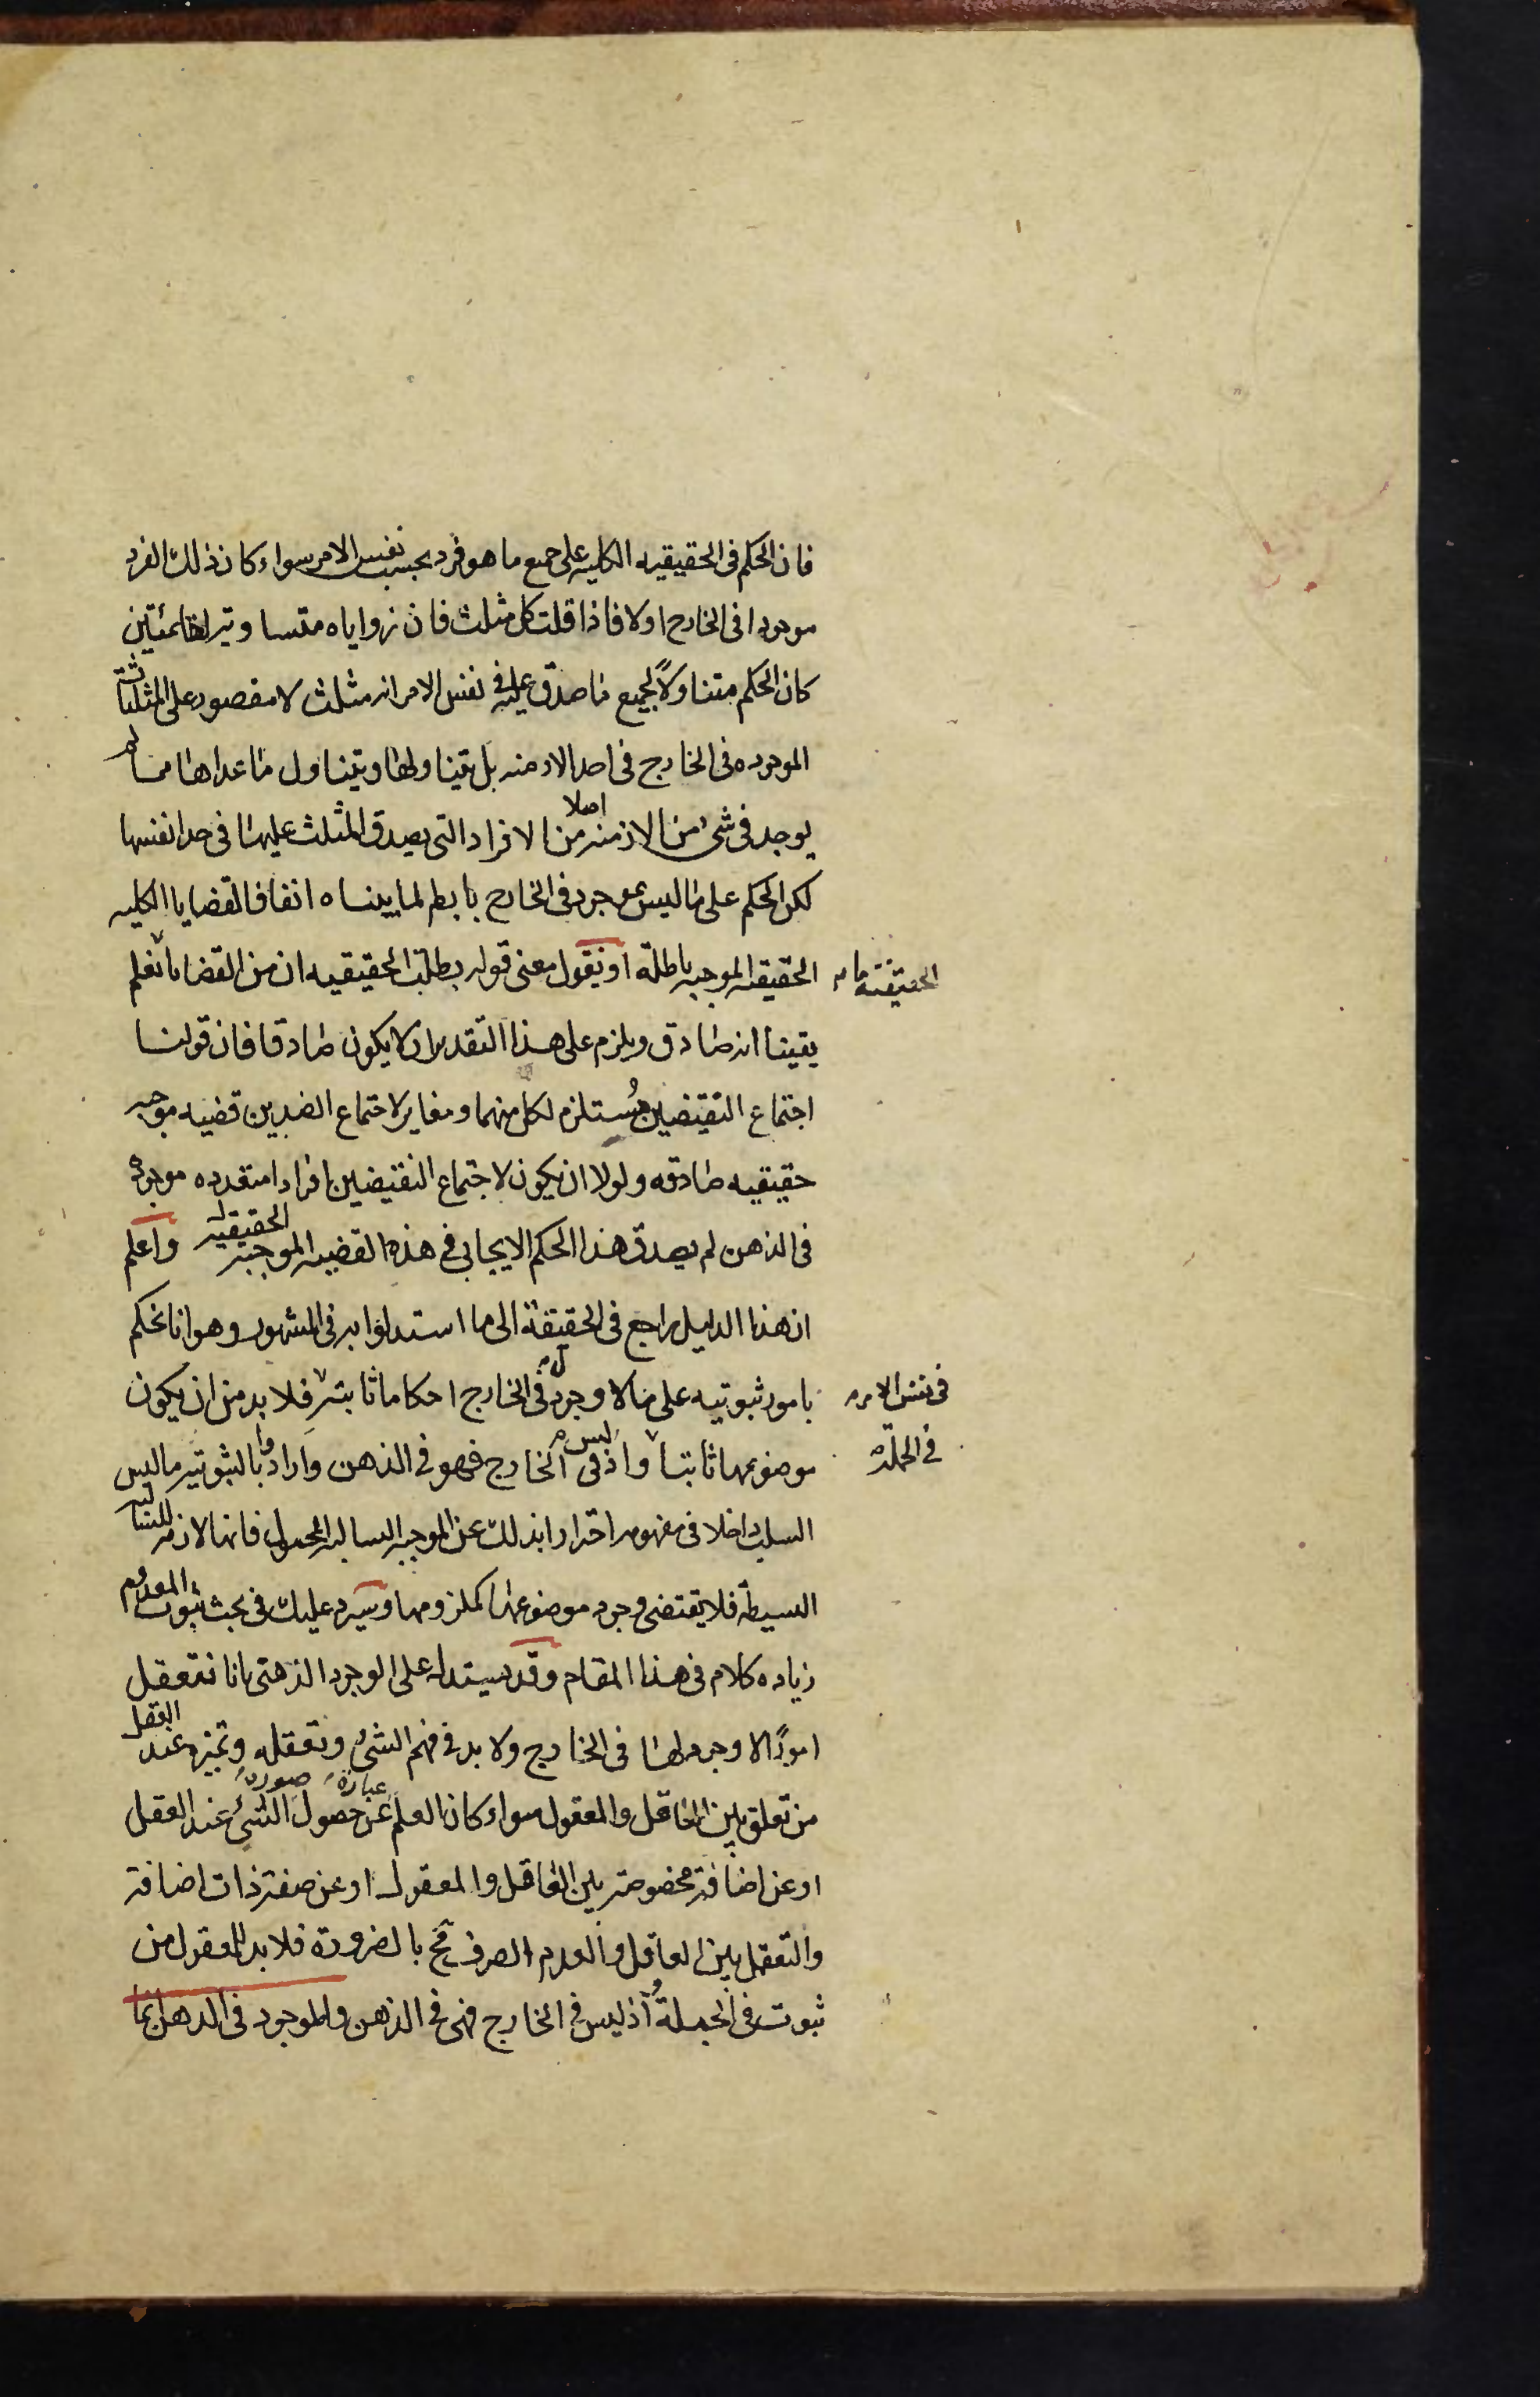 فان الحكم فى الحقيقيه الكليه على جميع ما هو فرد بحسب نفس الامر سواء كان ذلك الفرد
موجودا فى الخارج اولا فاذا قلت كل مثلث فان زواياه متساويه لقائمتين
كان الحكم متناولاً لجميع ما صدق عليه فى نفس الامر انه مثلث لا مقصور على المثلثات
الموجوده فى الخارج فى احد الازمنه بل يتناولها ويتناول ما عداها مما لم
يوجد فى شئ من الازمنه اصلا من الافراد التى يصدق المثلث عليها فى حد انفسها
لكن الحكم على ما ليس بموجود فى الخارج باطل لما بيناه انفا فالقضايا الكليه
الحقيقيه الموجبه باطلة او نقول معنى قوله بطلت الحقيقيه ان من القضايا ما نعلم
الحقيقة
يقينا انه صادق ويلزم على هذا التقدير ان لا يكون صادقا فان قولنا
اجتماع النقيضين مُستلزم لكل منهما ومغاير لاجتماع الضدين قضيه موجبه
حقيقيه صادقه ولولا ان يكون لاجتماع النقيضين افرادا متعدده موجوده
فى الذهن لم يصدق هذا الحكم الايجابى فى هذه القضيه الموجبه الحقيقيه واعلم
ان هذا الدليل راجع فى الحقيقة الى ما استدلوا به فى المشهور وهو انا نحكم
بامور ثبوتيه على ما لا وجود له فى الخارج احكاما ثابته فلا بد من ان يكون
فى نفس الامر
موضوعها ثابتا واذ ليس فى الخارج فهو فى الذهن وارادوا بالثبوتيه ما ليس
فى الجملة
السلب داخلا فى مفهومه احترازا بذلك عن الموجبه السالبه المحمول فانها لازمه للسالبه
البسيطة فلا يقتضى وجود موضوعها كملزومها وسيرد عليك فى بحث ثبوت المعدوم
زياده كلام فى هذا المقام وقد يستدل على الوجود الذهنى بانا نتعقل
امورًا لا وجود لها فى الخارج ولا بد فى فهم الشئ وتعقله وتميزه عند العقل
من تعلق بين العاقل والمعقول سواء كان العلم عبارة عن حصول صورة الشئ عند العقل
او عن اضافة مخصوصة بين العاقل والمعقول او عن صفة ذات اضافة
والتعقل بين العاقل والعدم الصرف مح بالضرورة فلا بد للمعقول من
ثبوت فى الجملة واذ ليس فى الخارج فهى فى الذهن والموجود فى الذهن انما